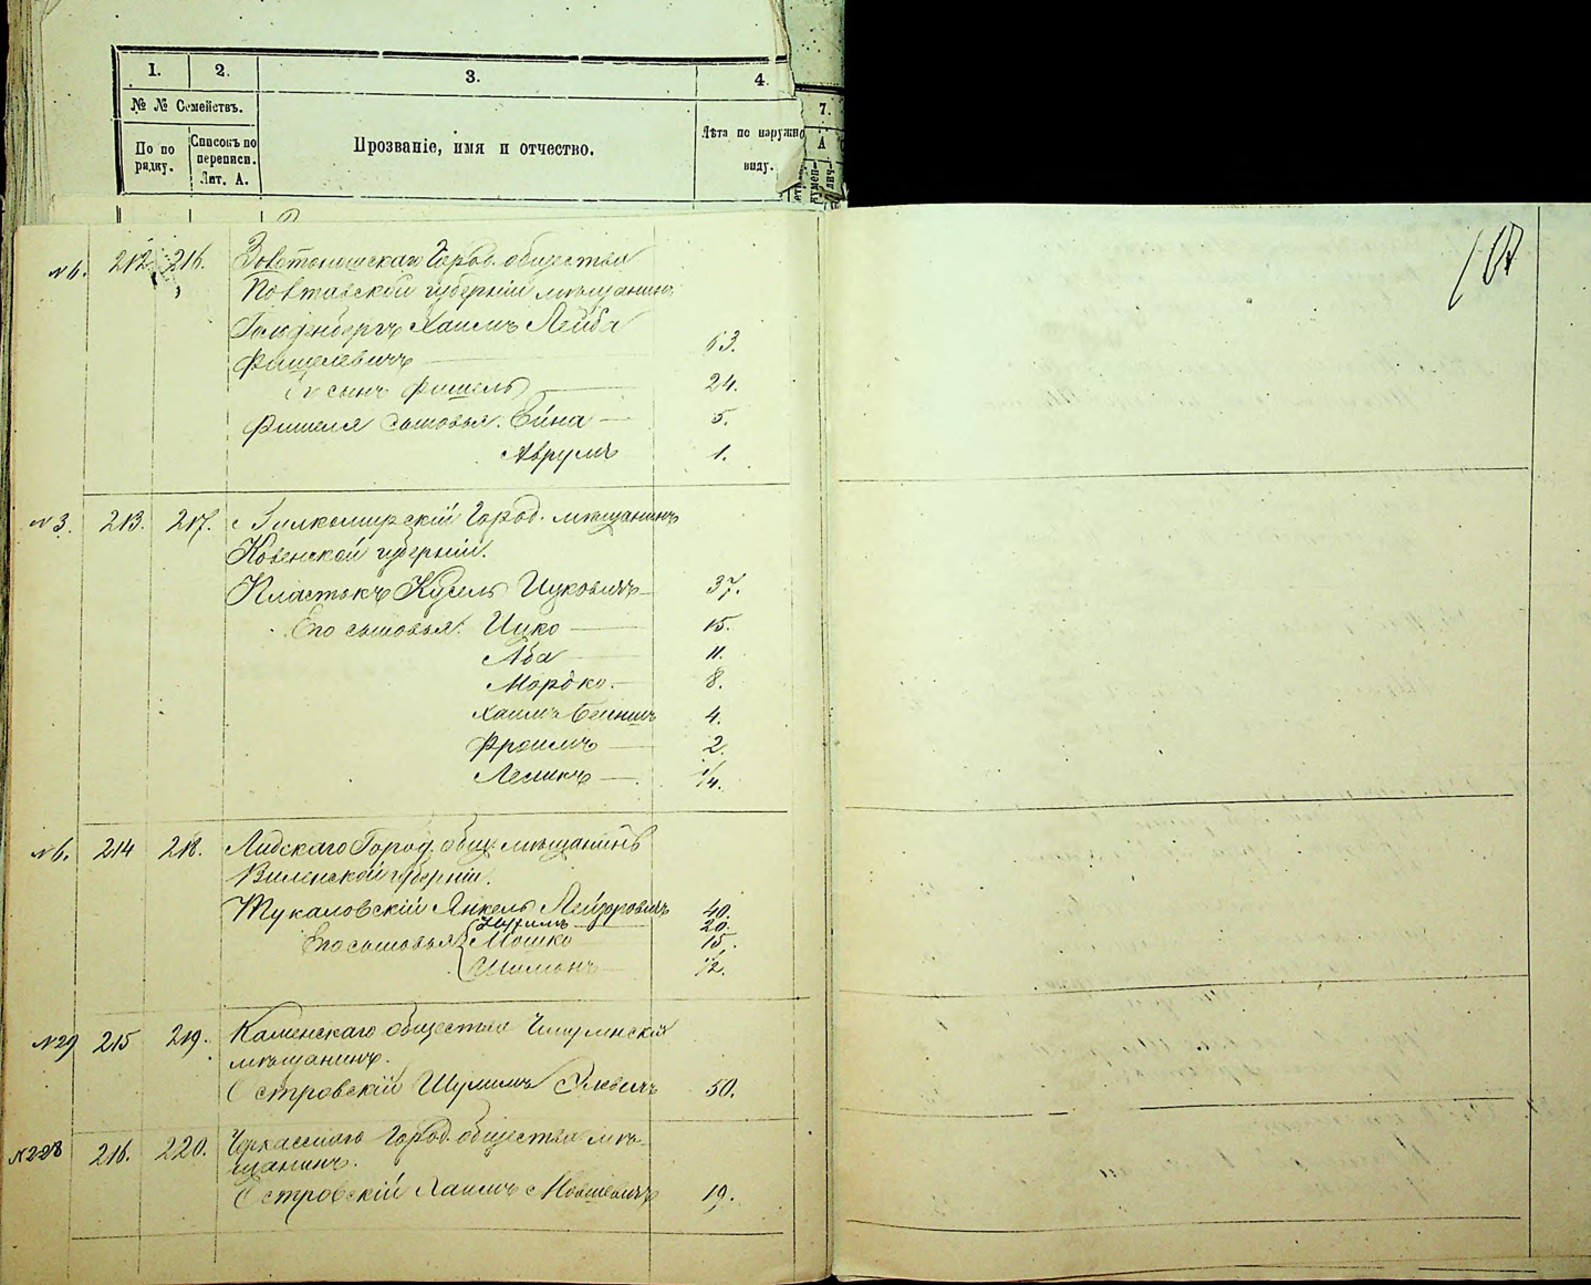 1. 2. 3. 4.
7.
№ № Семействъ.
А
По по рядку.
Списокъ по переписи. Лит. А.
Прозваніе, имя и отчество.
Лѣта по наружно
виду.
107
№6. 212 216. Золотоношскаго Город. общества
Полтавской губерніи мѣщанинъ
Гольденбергъ Хаимъ Лейба
Фишелевичъ 63.
Его сынъ Фишель 24.
Фишеля сыновья. Сина 5.
Аврумъ 1.
№3. 213. 217. Вилкомирскій Город. мѣщанинъ
Ковенской губерніи.
Пластокъ Кусель Ицковичъ 37.
Его сыновья: Ицко 15.
Аба 11.
Мордко. 8.
Хаимъ 4.
Фроимъ 2.
Лемикъ 1/4.
№6. 214 218. Лидскаго Город. общ. мѣщанинъ
Виленской губерніи.
Тукаловскій Янкель Лейзоровичъ 40.
20.
Его сыновья Мошко 15.
Шимонъ 1/2.
№29 215 219. Каменскаго общества Чигринскій
мѣщанинъ.
Островскій Шулимъ 50.
№228 216. 220. Черкасскаго Город. общества мѣ-
щанинъ.
Островскій Хаимъ Мовшевичъ 19.